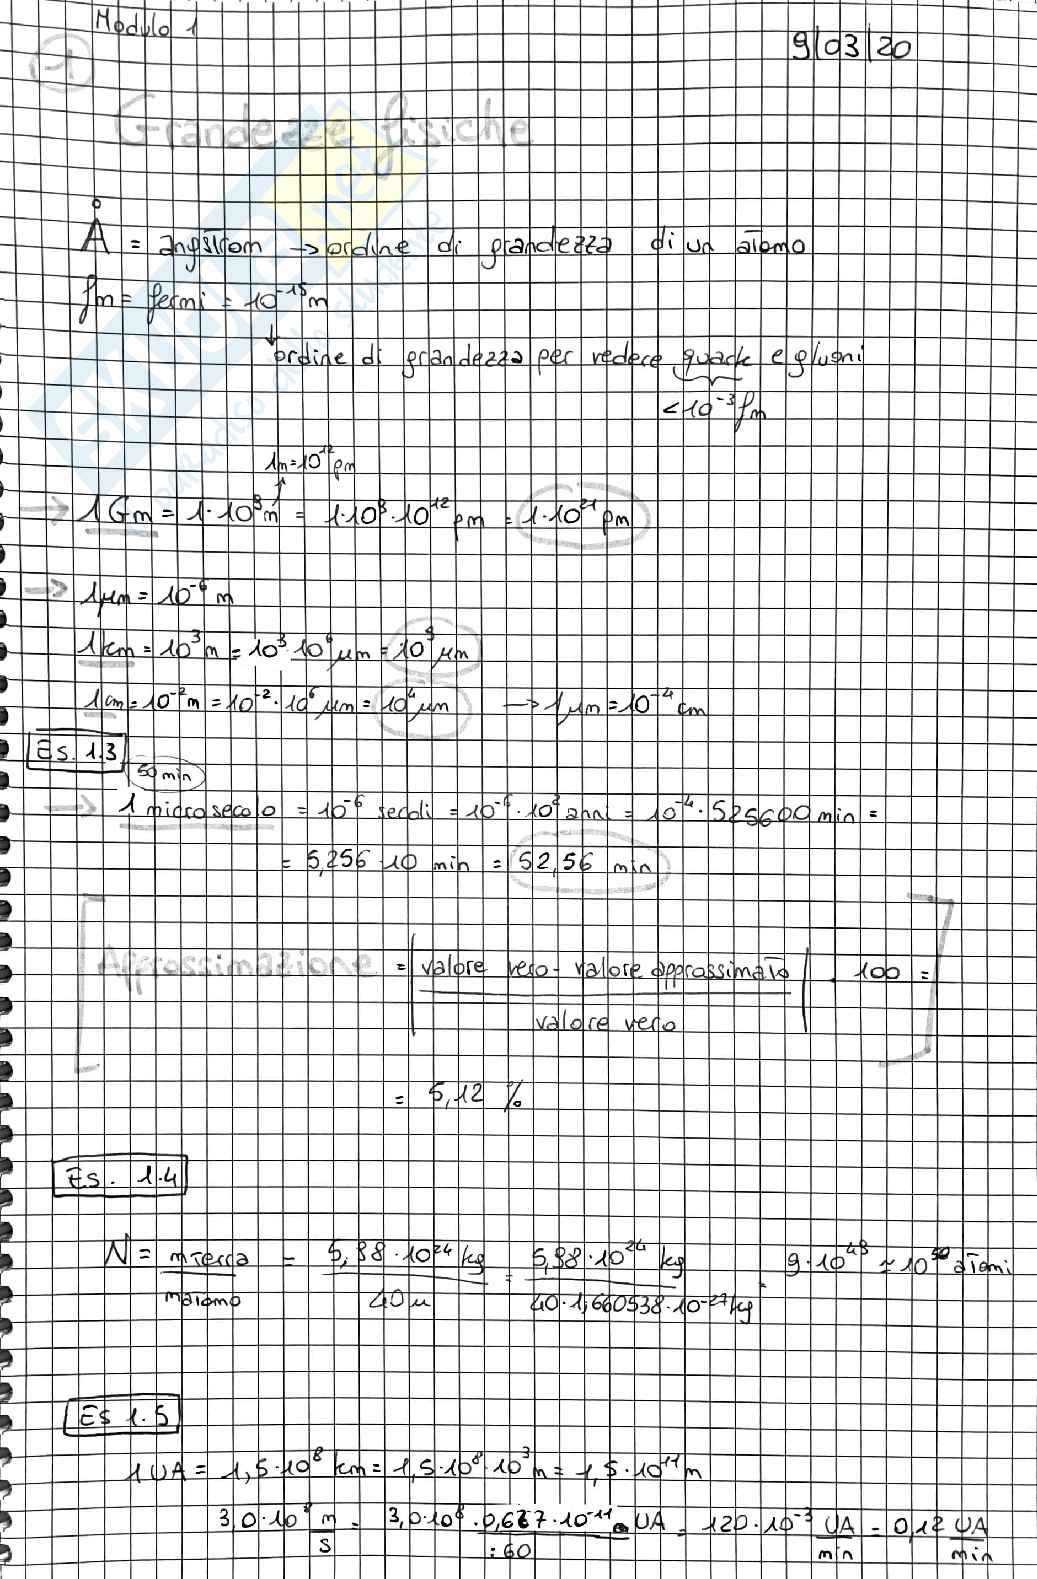 Modulo 1
1
9/03/20
Grandezze fisiche
Å = angstrom → ordine di grandezza di un atomo
fm = fermi = 10⁻¹⁵ m
↓ ordine di grandezza per vedere quark e gluoni
< 10⁻³ fm
1m = 10¹² pm
→ 1 Gm = 1·10⁹ m = 1·10⁹·10¹² pm = 1·10²¹ pm
→ 1 μm = 10⁻⁶ m
1 km = 10³ m = 10³·10⁶ μm = 10⁹ μm
1 cm = 10⁻² m = 10⁻²·10⁶ μm = 10⁴ μm → 1 μm = 10⁻⁴ cm
Es. 1.3
50 min
→ 1 microsecolo = 10⁻⁶ secoli = 10⁻⁶·10² anni = 10⁻⁴·525600 min =
= 5,256·10 min = 52,56 min
Approssimazione = | valore vero - valore approssimato / valore vero | · 100 =
= 5,12 %
Es. 1.4
N = mTerra / matomo = 5,98·10²⁴ kg / 40 u = 5,98·10²⁴ kg / 40·1,660538·10⁻²⁷ kg = 9·10⁴⁹ ≈ 10⁵⁰ atomi
Es 1.5
1 UA = 1,5·10⁸ km = 1,5·10⁸·10³ m = 1,5·10¹¹ m
3,0·10⁸ m/s = 3,0·10⁸·0,667·10⁻¹¹ UA / :60 = 120·10⁻³ UA/min = 0,12 UA/min